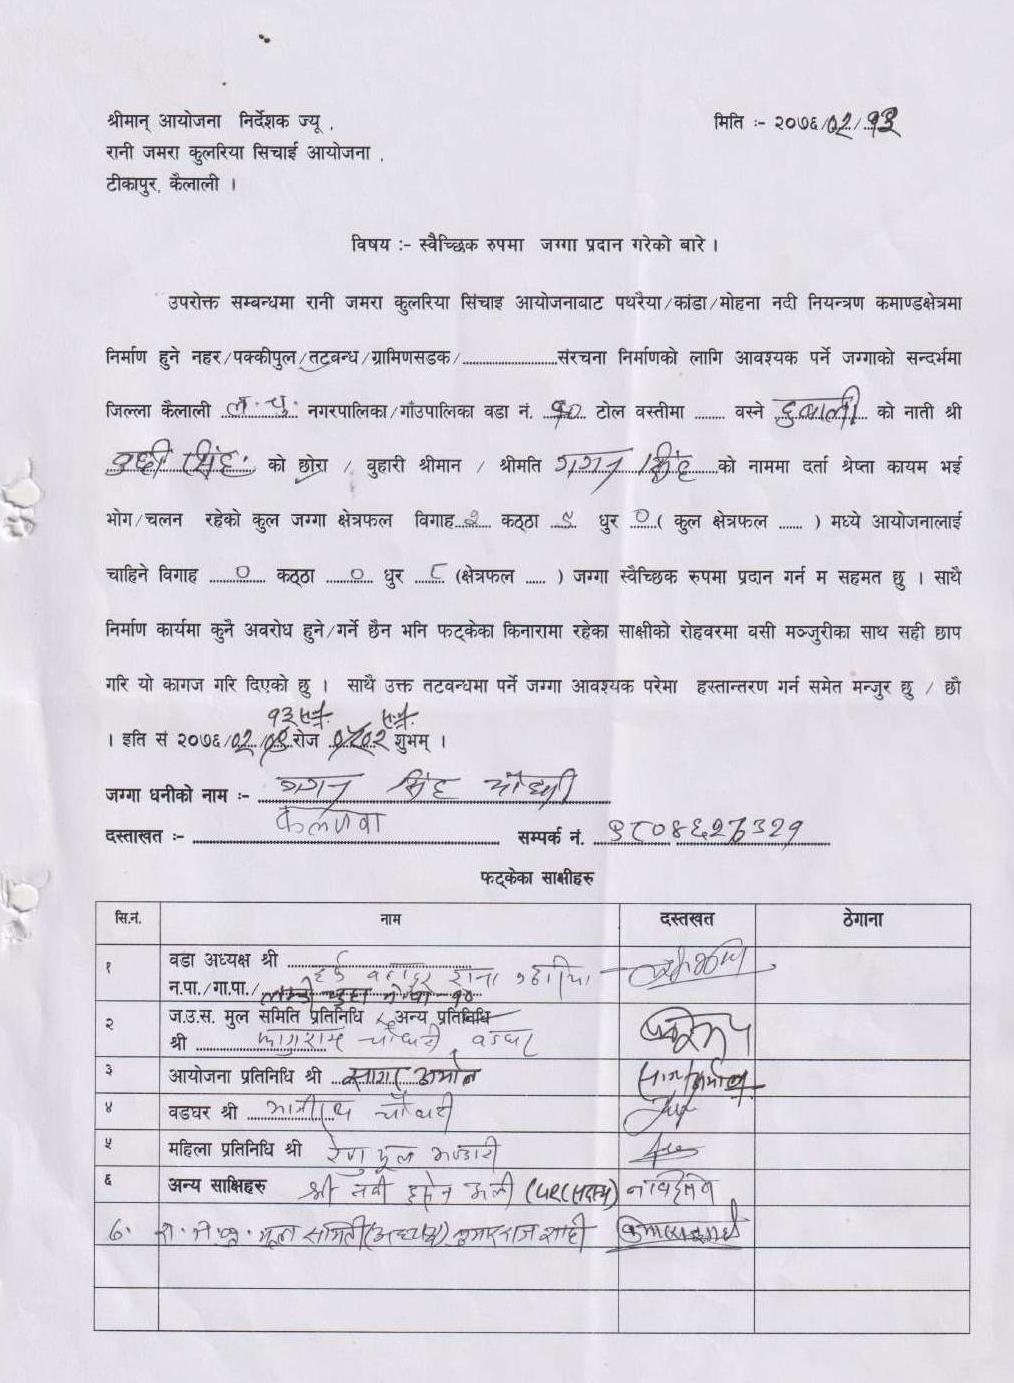 श्रीमान् आयोजना निर्देशक ज्यू ,
मिति :- २०७६/०२/१३
रानी जमरा कुलरिया सिचाई आयोजना ,
टीकापुर, कैलाली ।
विषय :- स्वैच्छिक रुपमा जग्गा प्रदान गरेको बारे ।
उपरोक्त सम्बन्धमा रानी जमरा कुलरिया सिंचाइ आयोजनाबाट पथरैया/कांडा/मोहना नदी नियन्त्रण कमाण्डक्षेत्रमा
निर्माण हुने नहर/पक्कीपुल/तटबन्ध/ग्रामिणसडक/......................संरचना निर्माणको लागि आवश्यक पर्ने जग्गाको सन्दर्भमा
जिल्ला कैलाली ल. चु. नगरपालिका/गाँउपालिका वडा नं. १० टोल वस्तीमा ........ वस्ने को नाती श्री
सिंह को छोरा / बुहारी श्रीमान / श्रीमति गगन सिंह को नाममा दर्ता श्रेष्ता कायम भई
भोग/चलन रहेको कुल जग्गा क्षेत्रफल विगाह २ कठ्ठा ९ धुर ० ( कुल क्षेत्रफल ...... ) मध्ये आयोजनालाई
चाहिने विगाह ० कठ्ठा ० धुर ८ (क्षेत्रफल ..... ) जग्गा स्वैच्छिक रुपमा प्रदान गर्न म सहमत छु । साथै
निर्माण कार्यमा कुनै अवरोध हुने/गर्ने छैन भनि फट्केका किनारामा रहेका साक्षीको रोहवरमा वसी मञ्जुरीका साथ सही छाप
गरि यो कागज गरि दिएको छु । साथै उक्त तटवन्धमा पर्ने जग्गा आवश्यक परेमा हस्तान्तरण गर्न समेत मन्जुर छु / छौ
१३
। इति सं २०७६/०२/ रोज शुभम् ।
जग्गा धनीको नाम :- गगन सिंह चौधरी
दस्ताखत :- सम्पर्क नं. ९८०४६२७३२१
फट्केका साक्षीहरु
सि.नं. नाम दस्तखत ठेगाना
१ वडा अध्यक्ष श्री बहादुर राना
न.पा./गा.पा./ १०
२ ज.उ.स. मुल समिति प्रतिनिधि / अन्य प्रतिनिधि
श्री फागुराम चौधरी
३ आयोजना प्रतिनिधि श्री सागर
४ वडघर श्री चौधरी
५ महिला प्रतिनिधि श्री भण्डारी
६ अन्य साक्षिहरु श्री नवी हुसेन अली
७. मूल समिती (अध्यक्ष) कुमारराज शाही